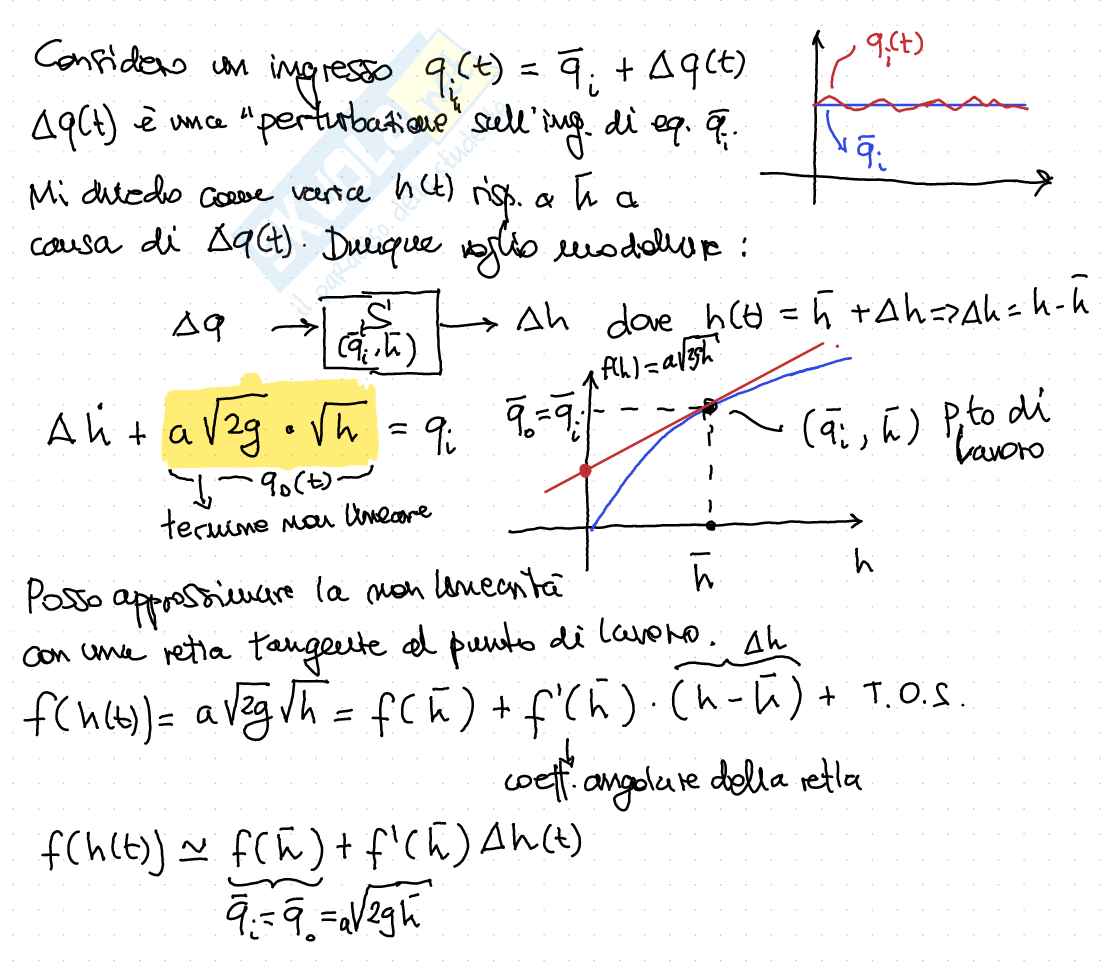 Considero un ingresso qᵢ(t) = q̄ᵢ + Δq(t)
Δq(t) è una "perturbazione" sull'ing. di eq. q̄ᵢ.
Mi chiedo come varia h(t) risp. a h̄ a
causa di Δq(t). Dunque voglio modellare :
qᵢ(t)
q̄ᵢ
Δq → S (q̄ᵢ, h̄) → Δh dove h(t) = h̄ + Δh => Δh = h - h̄
A ḣ + a√2g · √h = qᵢ
q₀(t)
termine non lineare
f(h) = a√2gh
q̄₀ = q̄ᵢ
(q̄ᵢ, h̄) P.to di
lavoro
h̄
h
Posso approssimare la non linearità
con una retta tangente al punto di lavoro.
Δh
f(h(t)) = a√2g √h = f(h̄) + f'(h̄) · (h - h̄) + T.O.S.
coeff. angolare della retta
f(h(t)) ≃ f(h̄) + f'(h̄) Δh(t)
q̄ᵢ = q̄₀ = a√2gh̄